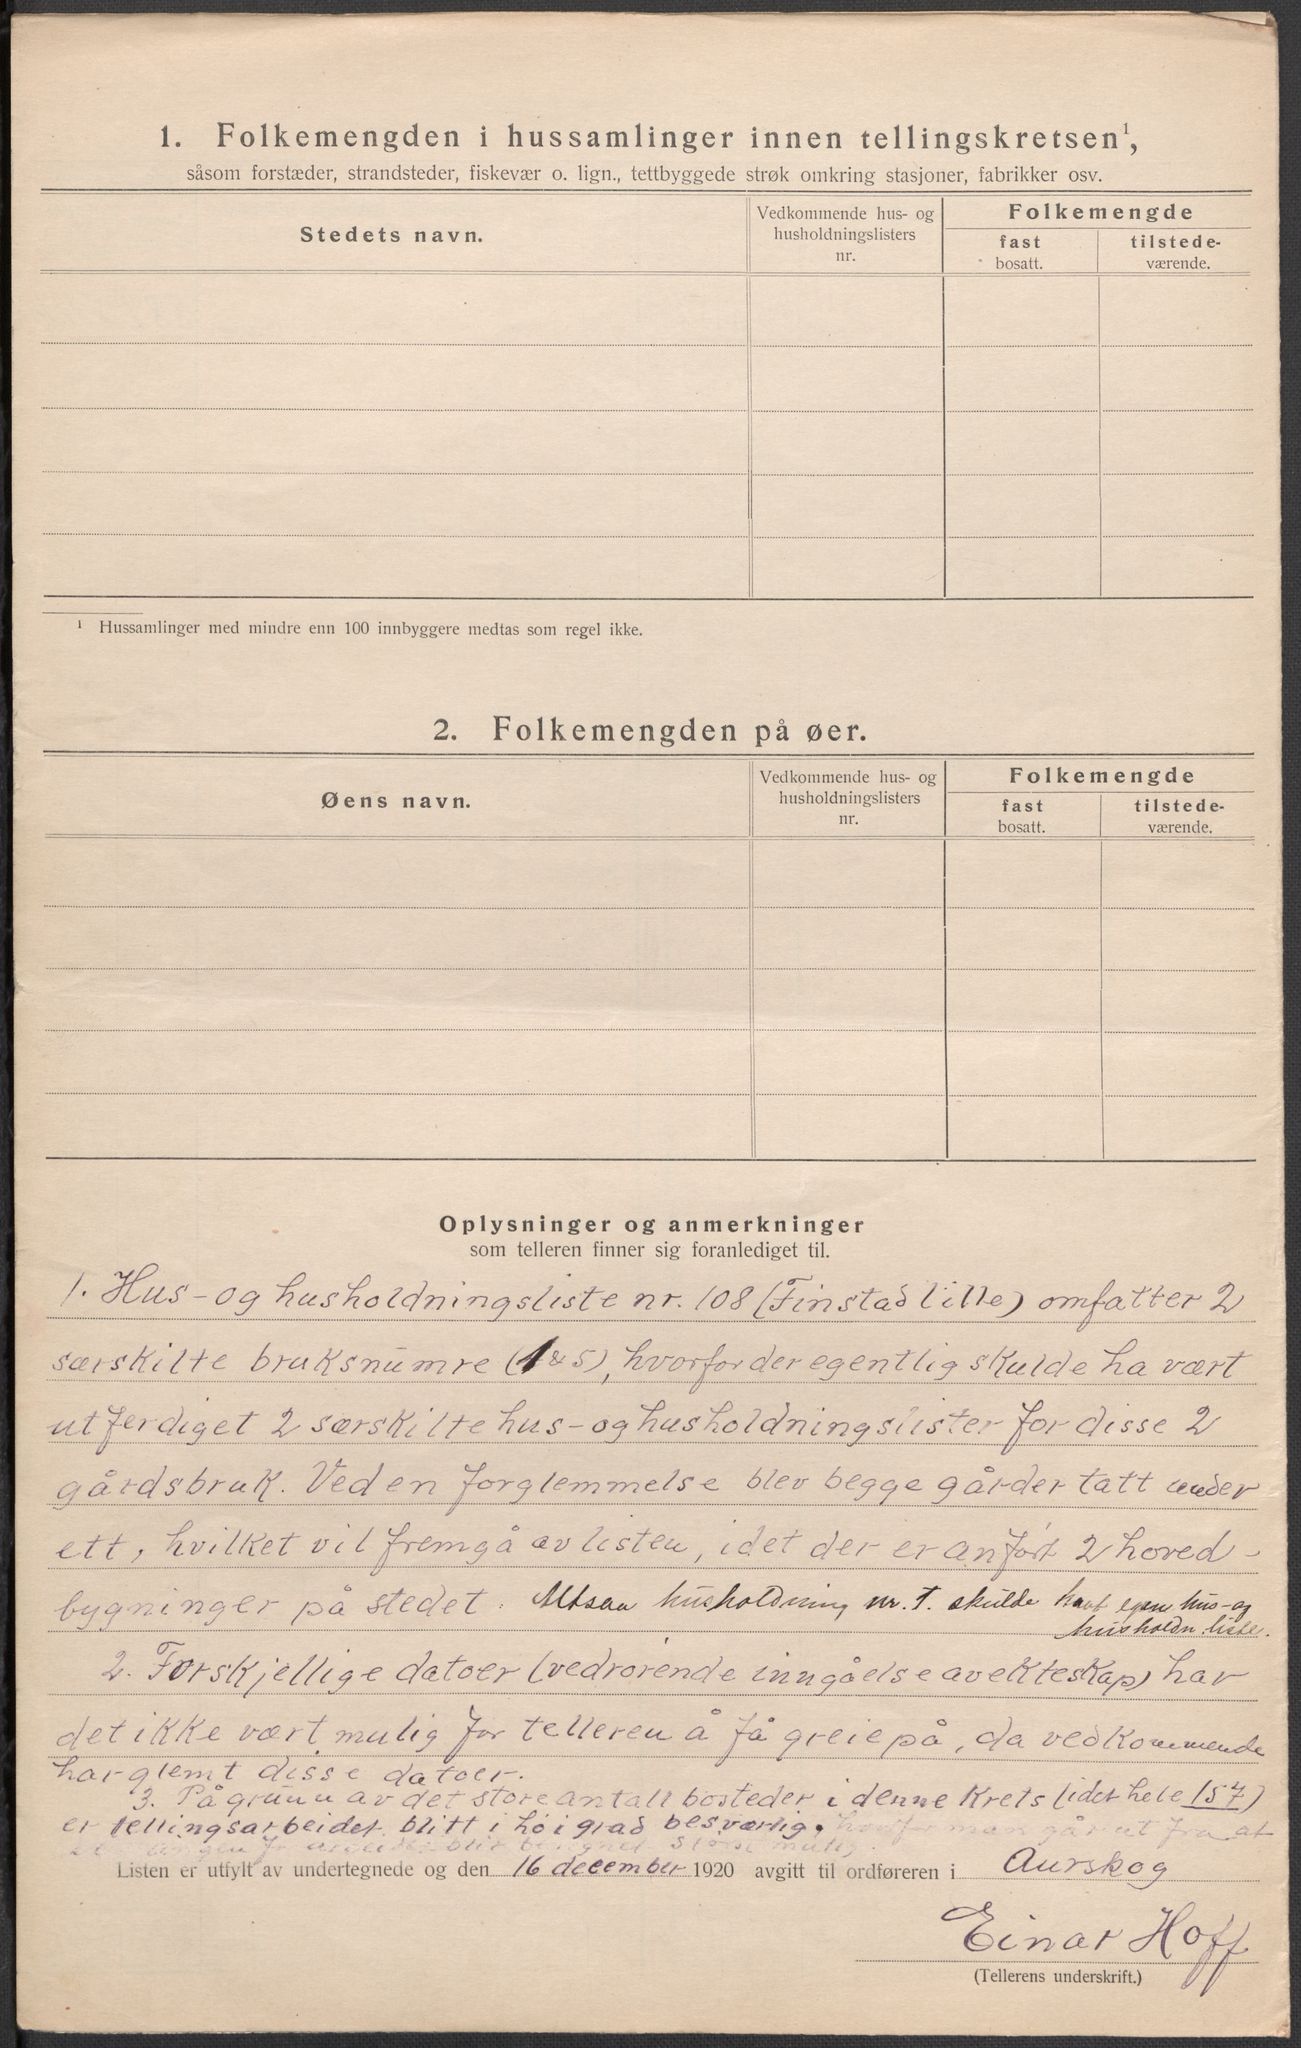 1. Folkemengden i hussamlinger innen tellingskretsen¹,
såsom forstæder, strandsteder, fiskevær o. lign., tettbyggede strøk omkring stasjoner, fabrikker osv.
Stedets navn.
Vedkommende hus- og
husholdningslisters
nr.
Folkemengde
fast
bosatt.
tilstede-
værende.
¹ Hussamlinger med mindre enn 100 innbyggere medtas som regel ikke.
2. Folkemengden på øer.
Øens navn.
Vedkommende hus- og
husholdningslisters
nr.
Folkemengde
fast
bosatt.
tilstede-
værende.
Oplysninger og anmerkninger
som telleren finner sig foranlediget til.
1. Hus- og husholdningsliste nr. 108 (Finstad lille) omfatter 2
særskilte bruksnumre (1 & 5), hvorfor der egentlig skulde ha vært
utferdiget 2 særskilte hus- og husholdningslister for disse 2
gårdsbruk. Ved en forglemmelse blev begge gårder tatt under
ett, hvilket vil fremgå av listen, idet der er anført 2 hoved-
bygninger på stedet. Altsaa husholdning nr. 1. skulde havt egen hus- og
husholdn. liste.
2. Forskjellige datoer (vedrørende inngåelse av ekteskap) har
det ikke vært mulig for telleren å få greie på, da vedkommende
har glemt disse datoer.
3. På grunn av det store antall bosteder i denne krets (i det hele 157)
er tellingsarbeidet blitt i høi grad besværlig, man går ut fra at
blir størst mulig
Listen er utfylt av undertegnede og den 16 december 1920 avgitt til ordføreren i Aurskog
Einar Hoff
(Tellerens underskrift.)